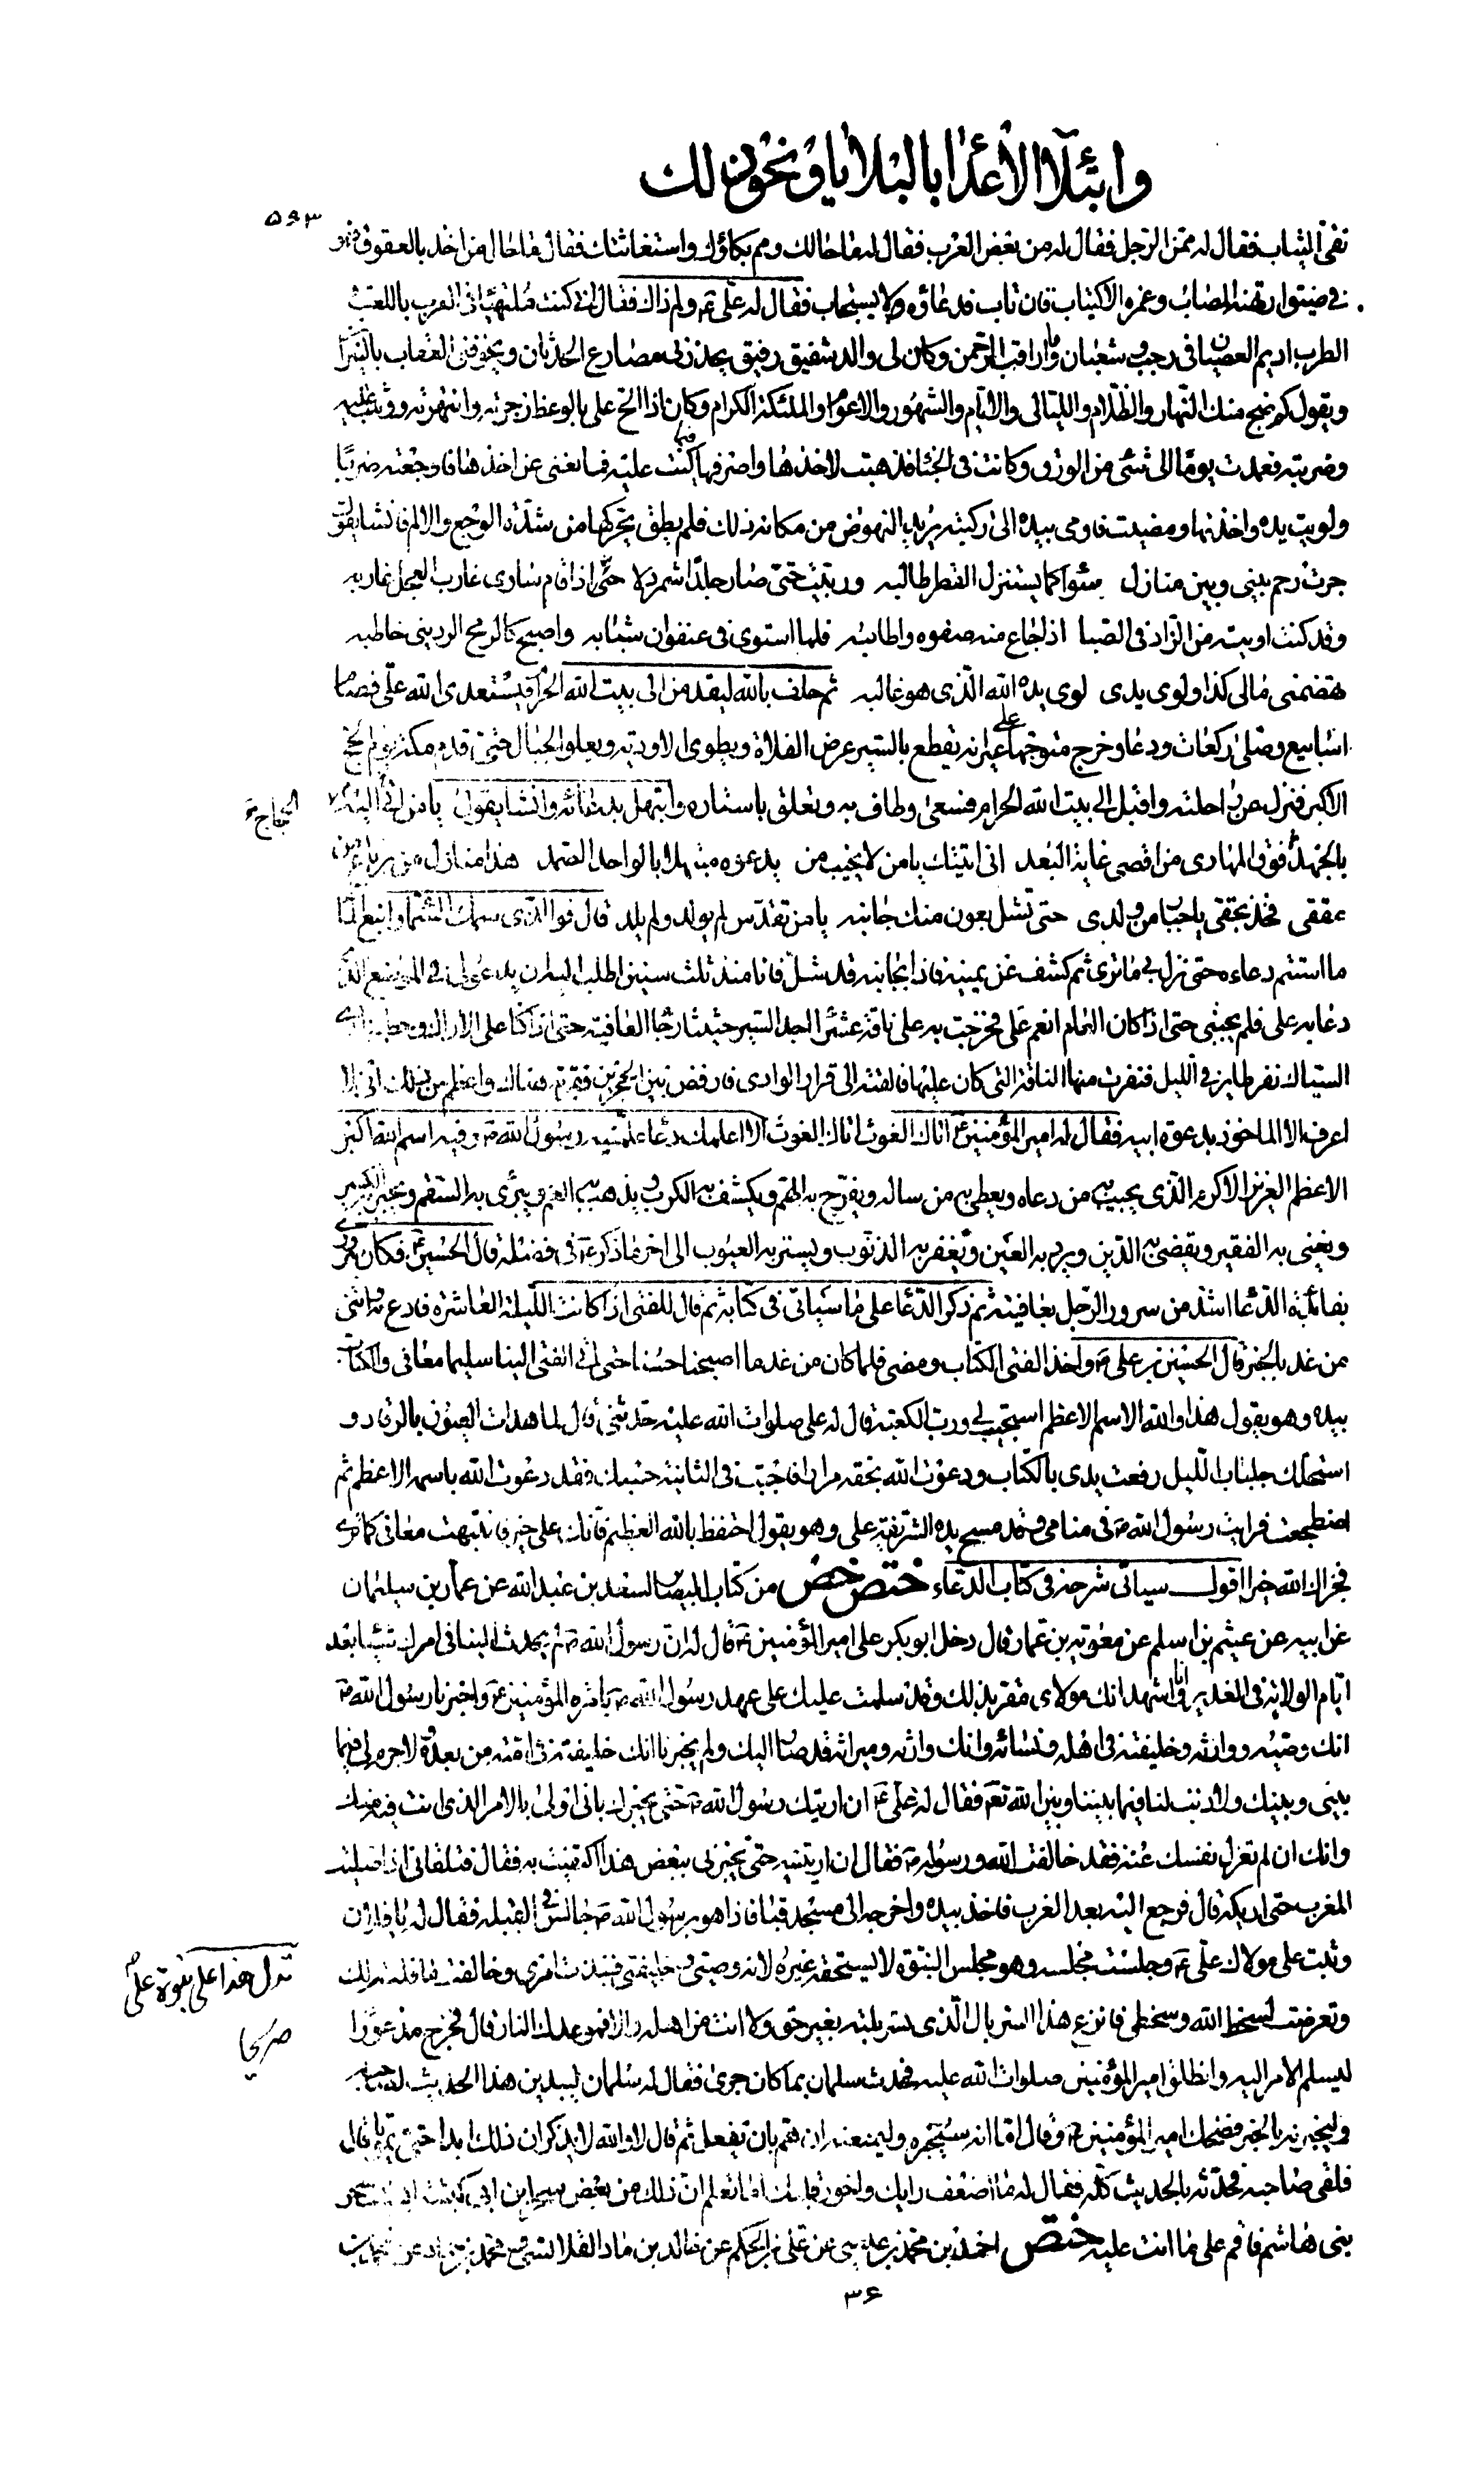 وابتلاء الأعداء بالبلايا ونحو ذلك
۵۹۳
نقي الثياب فقال له ممن الرجل فقال له من بعض العرب فقال له ما حالك ومم بكاؤك واستغاثتك فقال ما حال من اخذ بالعقوق فهو
في ضيق ارتهنه المصاب وغمره الاكتياب فان تاب فدعاؤه لا يستجاب فقال له علي ع ولم ذاك فقال اني كنت ملتهيا في العرب باللعب
الطرب اديم العصيان في رجب وشعبان وما اراقب الرحمن وكان لي والد شفيق رفيق يحذرني مصارع الحدثان ويخوفني العقاب بالنيران
ويقول كم ضج منك النهار والظلام والليالي والايام والشهور والاعوام والملئكة الكرام وكان اذا الح علي بالوعظ زجرته وانتهرته ووثبت عليه
وضربته فعمدت يوما الى شئ من الورق وكانت في الخبا فذهبت لاخذها واصرفها فيما كنت عليه فمانعني عن اخذها فاوجعته ضربا
ولويت يده واخذتها ومضيت فاومى بيده الى ركبتيه يريد النهوض من مكانه ذلك فلم يطق يحركها من شدة الوجع والالم فانشا يقول
جرت رحم بيني وبين منازل سواء كما يستنزل القطر طالبه وربيت حتى صار جلدا شمردلا حتى اذا قام ساوى غارب العجل غاربه
وقد كنت اوتيه من الزاد في الصبا اذا جاع منه صفوه واطائبه فلما استوى في عنفوان شبابه واصبح كالرمح الرديني خاطبه
تهضمني مالي كذا ولوى يدي لوى يده الله الذي هو غالبه ثم حلف بالله ليقدمن الى بيت الله الحرام فيستعدي الله علي فصام
اسابيع وصلى ركعات ودعا وخرج متوجها على عيرانه يقطع بالسير عرض الفلاة ويطوي الاودية ويعلو الجبال حتى قدم مكة يوم الحج
الاكبر فنزل عن راحلته واقبل الى بيت الله الحرام فسعى وطاف به وتعلق باستاره وابتهل بدعائه وانشا يقول يا من اليه اتى
الحجاج
بالجهد فوق المهاري من اقصى غاية البعد اني اتيتك يا من لا يخيب من يدعوه مبتهلا بالواحد الصمد هذا منازل من يرتاع من
عققي فخذ بحقي يا جبار من ولدي حتى تشل بعون منك جانبه يا من تقدس لم يولد ولم يلد قال فوالذي سمك السماء وانبع الماء
ما استتم دعاءه حتى نزل بي ما ترى ثم كشف عن يمينه فاذا بجانبه قد شل فانا منذ ثلث سنين اطلب اليه ان يدعو لي في الموضع الذي
دعا به علي فلم يجبني حتى اذا كان العام انعم علي فخرجت به على ناقة عشراء اجد السير حثيثا رجاء العافية حتى اذا كنا على الاراك وحطمة وادي
السياك نفر طاير في الليل فنفرت منها الناقة التي كان عليها فالقته الى قرار الوادي فارفض بين الحجرين فقبرته هناك واعظم من ذلك اني لا
اعرف الا الماخوذ بدعوة ابيه فقال له امير المؤمنين ع اتاك الغوث اتاك الغوث الا اعلمك دعاء علمنيه رسول الله ص وفيه اسم الله الاكبر
الاعظم العزيز الاكرم الذي يجيب به من دعاه ويعطي به من ساله ويفرج به الهم ويكشف به الكرب ويذهب به الغم ويبرئ به السقم ويجبر به الكسير
ويغني به الفقير ويقضي به الدين ويرد به العين ويغفر به الذنوب ويستر به العيوب الى اخر ما ذكره ع في فضله قال الحسين ع فكان سروري
بفائدة الدعا اشد من سرور الرجل بعافيته ثم ذكر الدعا على ما سياتي في كتابه ثم قال للفتى اذا كانت الليلة العاشرة فادع به وائتني
من غد بالخبر قال الحسين بن علي ع واخذ الفتى الكتاب ومضى فلما كان من غد ما اصبحنا حسنا حتى اتى الفتى الينا سليما معافى والكتاب
بيده وهو يقول هذا والله الاسم الاعظم استجيب لي ورب الكعبة قال له علي صلوات الله عليه حدثني قال لما هدات العيون بالرقاد و
استحلك جلباب الليل رفعت يدي بالكتاب ودعوت الله بحقه مرارا فاجبت في الثانية حسبك فقد دعوت الله باسمه الاعظم ثم
اضطجعت فرايت رسول الله ص في منامي وقد مسح يده الشريفة علي وهو يقول احتفظ بالله العظيم فانك على خير فانتبهت معافى كما ترى
فجزاك الله خيرا اقول سياتي شرحه في كتاب الدعاء ختص خص من كتاب البصائر لسعد بن عبد الله عن عمار بن سليمان
عن ابيه عن عيثم بن اسلم عن معوية بن عمار قال دخل ابو بكر على امير المؤمنين ع قال له ان رسول الله ص لم يحدث الينا في امرك شيئا بعد
ايام الولاية في الغدير وانا اشهد انك مولاي مقر بذلك وقد سلمت عليك على عهد رسول الله ص بامرة المؤمنين ع واخبرنا رسول الله ص
انك وصيه ووارثه وخليفته في اهله ونسائه وانك وارثه وميراثه قد صار اليك ولم يخبرنا انك خليفته في امته من بعده ولا جرم لي فيما
بيني وبينك ولا ذنب لنا فيما بيننا وبين الله تع فقال له علي ع ان اريتك رسول الله ص حتى يخبرك باني اولى بالامر الذي انت فيه منك
وانك ان لم تعزل نفسك عنه فقد خالفت الله ورسوله ص فقال ان اريتنيه حتى يخبرني ببعض هذا اكتفيت به فقال فتلقاني اذا صليت
المغرب حتى اريكه قال فرجع اليه بعد المغرب فاخذ بيده واخرجه الى مسجد قبا فاذا هو برسول الله ص جالس في القبلة فقال له يا فلان
وثبت على مولاك علي ع وجلست مجلسه وهو مجلس النبوة لا يستحقه غيره لانه وصيي وخليفتي فنبذت امري وخالفت ما قلته لك
تدل هذا على نبوة علي
وتعرضت لسخط الله وسخطي فانزع هذا السربال الذي تسربلته بغير حق ولا انت من اهله والا فموعدك النار قال فخرج مذعورا
صريحا
ليسلم الامر اليه وانطلق امير المؤمنين صلوات الله عليه فحدث سلمان بما كان جرى فقال له سلمان ليبدين هذا الحديث لصاحبه
وليخبرنه بالخبر فضحك امير المؤمنين ع وقال اما انه سيخبره وليمنعنه ان هم بان يفعل ثم قال لا والله لا يذكران ذلك ابدا حتى يموتا قال
فلقي صاحبه فحدثه بالحديث كله فقال له ما اضعف رايك واخور قلبك اما تعلم ان ذلك من بعض سحر ابن ابي كبشة انسيت سحر
بني هاشم فاقم على ما انت عليه ختص احمد بن محمد بن عيسى عن علي بن الحكم عن خالد بن ماد القلانسي ومحمد بن حماد عن
۳۶